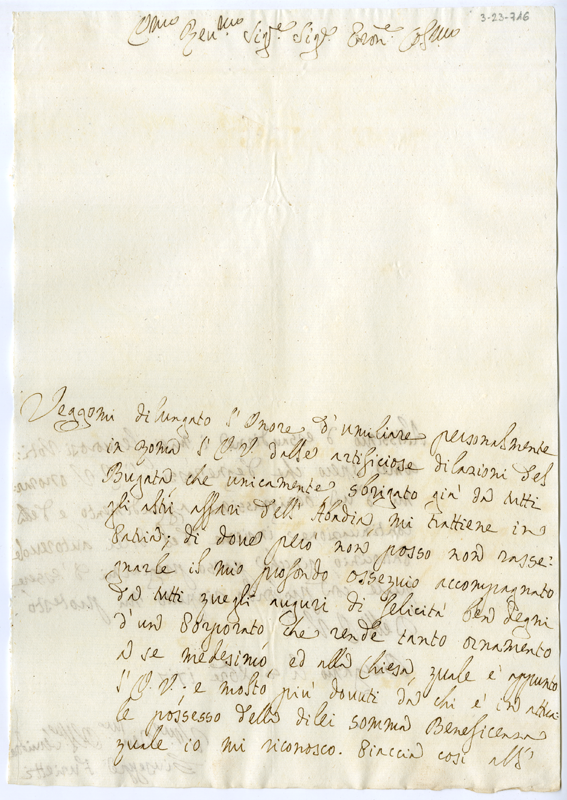 3-23-746
Em̃o Revmo Sigre Sigre Pron. Colmo
Veggomi dilungato l'Onore d'umiliare personalmente
in Roma l'E.V. dalle artificiose dilazioni del
Bugata che unicamente sbrigato già da tutti
gli altri affari dell'Abadia mi trattiene in
Patria; di dove però non posso non rasse:
gnarle il mio profondo ossequio accompagnato
da tutti quegli auguri di felicità ben degni
d'un Porporato che rende tanto ornamento
a se medesimo ed alla Chiesa, quale è appunto
l'E.V.; e molto più dovuti da chi è in attua
le possesso della dilei somma Beneficenza
quale io mi riconosco. Piaccia così all'